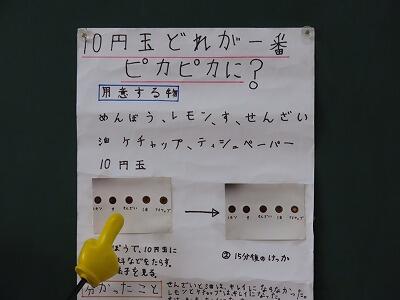 10円玉どれが一番
ピカピカに?
用意する物
めんぼう、レモン、す、せんざい
油 ケチャップ、ティシュペーパー
10円玉
レモン す せんざい 油 ケチャップ
ぼうで、10円玉に
料などをたらす。
子を見る。
② 15分後のけっか
分かったこと
せんざいと油は、キレイにならなかった。
レモンとケチャップはキレイになった。